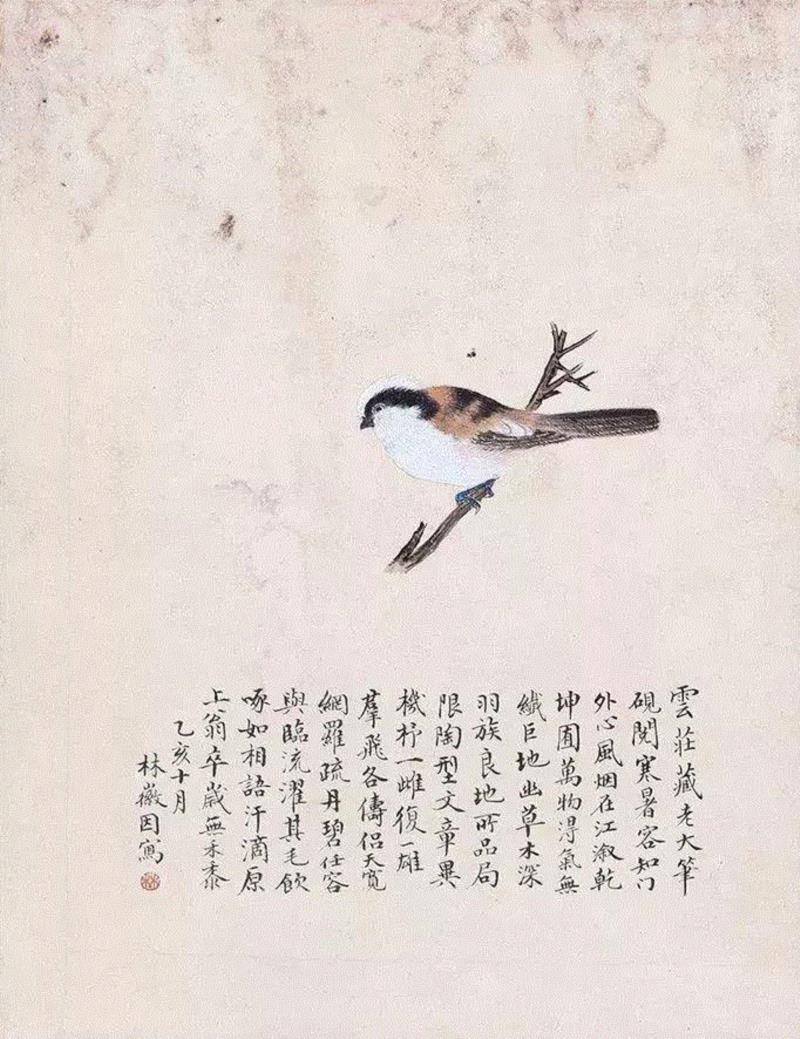 雲莊藏老大筆
硯閱寒暑容知门
外心風烟在江溆乾
坤囿萬物淂氣無
纖巨地幽草木深
羽族良地所品局
限陶型文章異
機杼一雌復一雄
羣飛各儔侶天寬
網羅疏丹碧任容
與臨流濯其毛飲
啄如相語汗滴原
上翁卒歲無禾黍
乙亥十月
林徽因寫